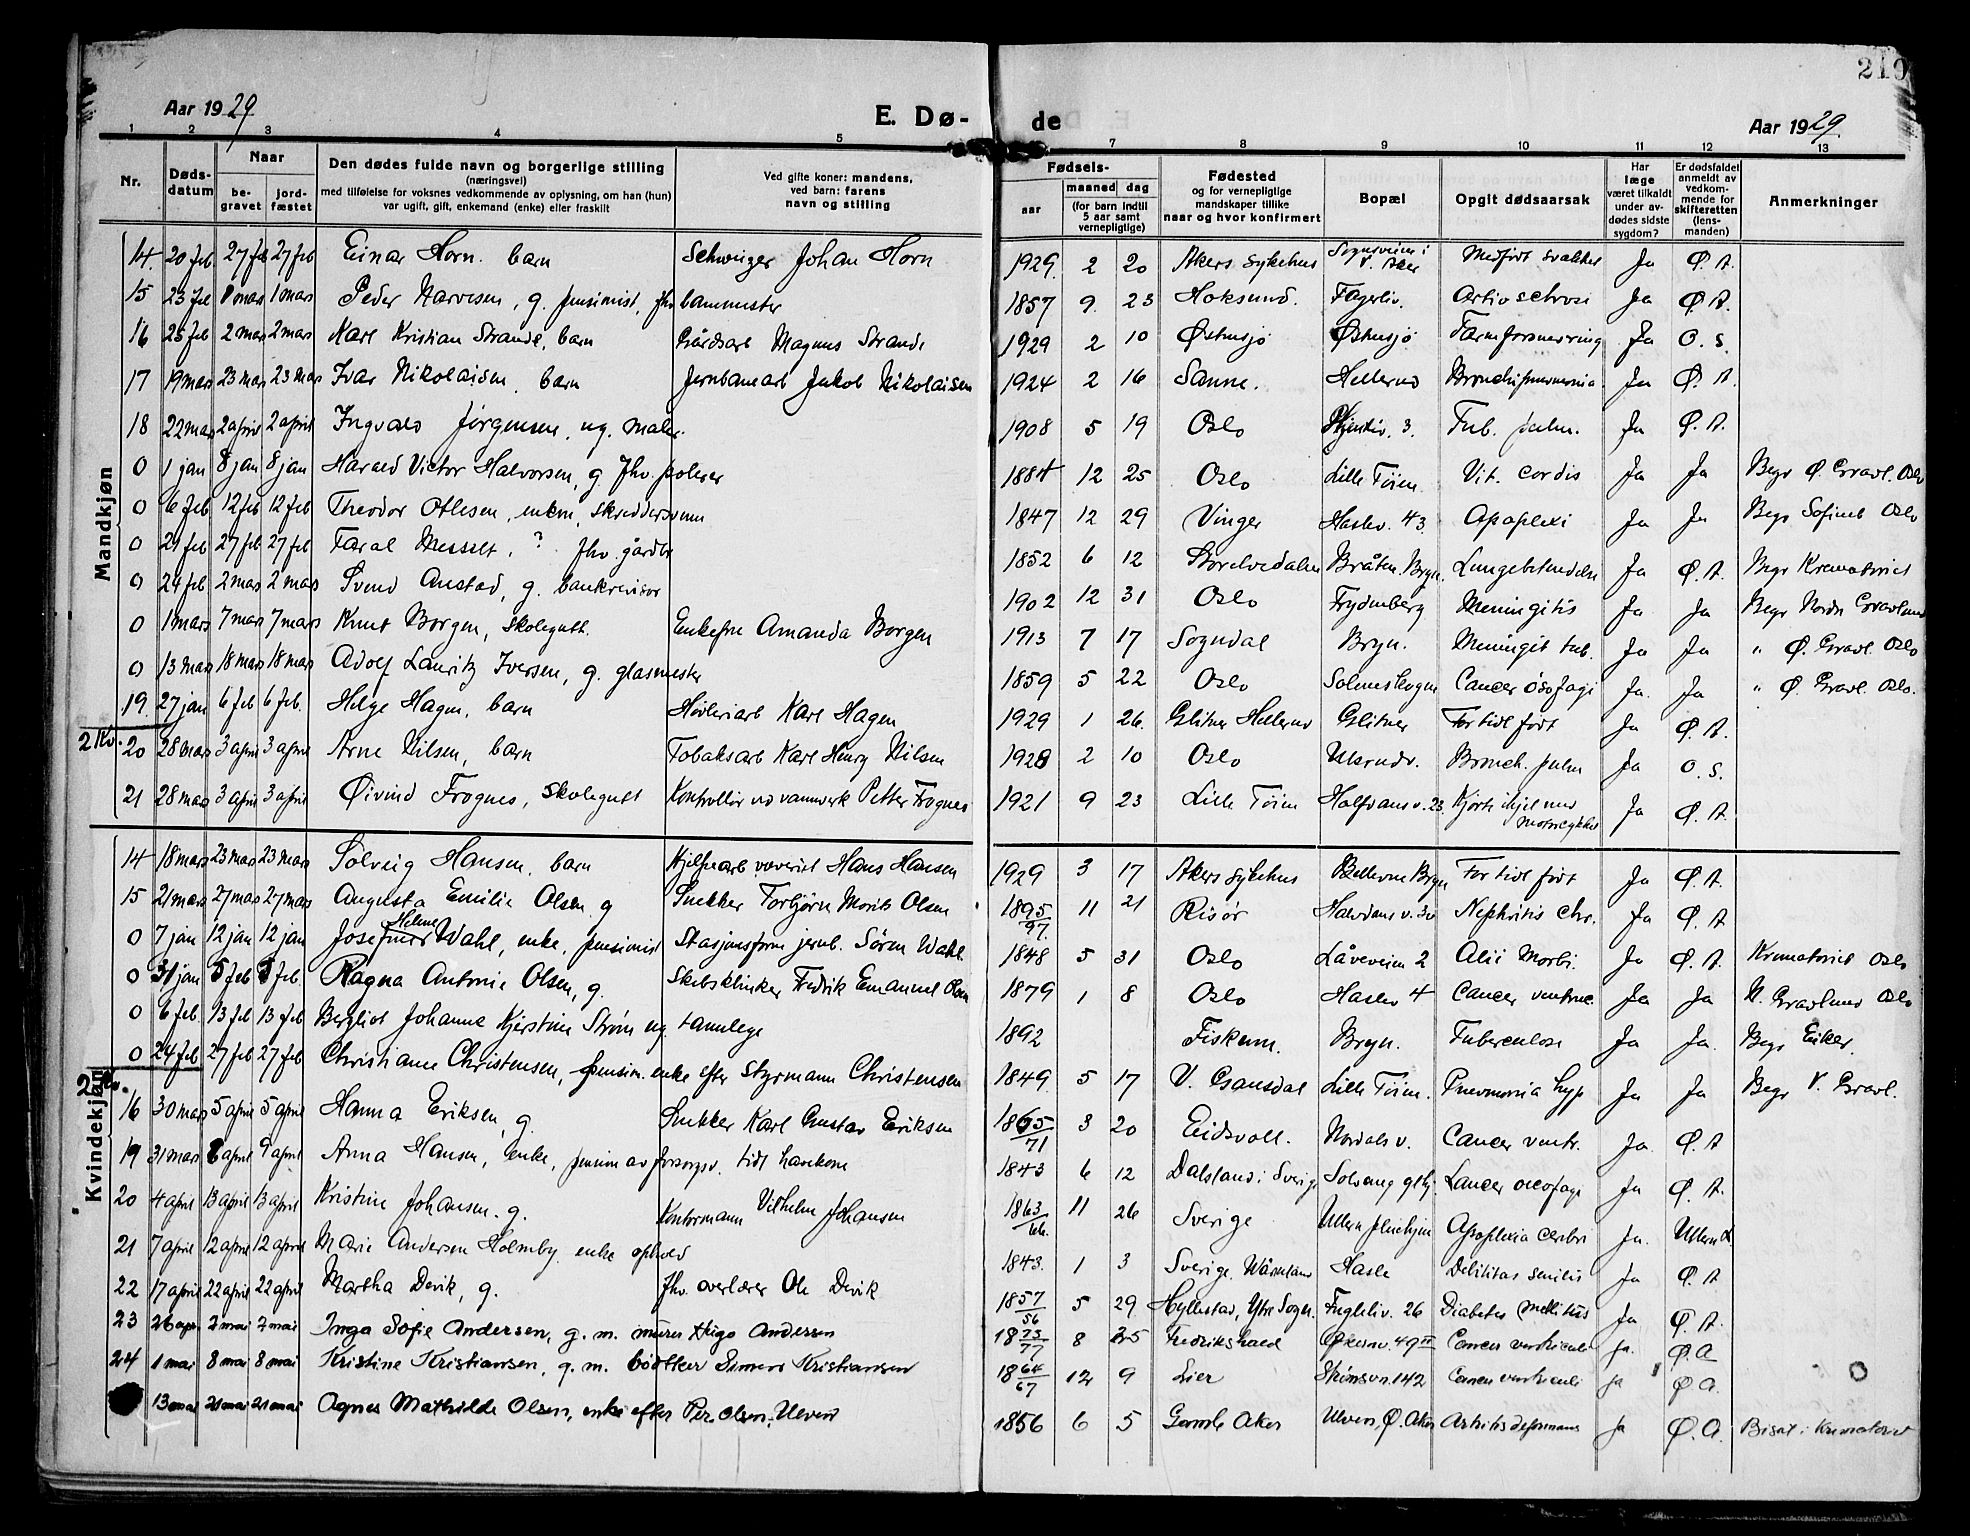 210
Aar 1929
E. Dø-
de
Aar 1929
1 2 3 4 5 7 8 9 10 11 12 13
Nr.
Døds-
datum
Naar
be-
gravet
jord-
fæstet
Den dødes fulde navn og borgerlige stilling
(næringsvei)
med tilføielse for voksnes vedkommende av oplysning, om han (hun)
var ugift, gift, enkemand (enke) eller fraskilt
Ved gifte koner: mandens,
ved barn: farens
navn og stilling
Fødsels-
aar
maaned
dag
(for barn indtil
5 aar samt
vernepligtige)
Fødested
og for vernepligtige
mandskaper tillike
naar og hvor konfirmert
Bopæl
Opgit dødsaarsak
Har
læge
været tilkaldt
under av-
dødes sidste
sygdom?
Er dødsfaldet
anmeldt av
vedkom-
mende for
skifteretten
(lens-
manden)
Anmerkninger
Mandkjøn
14. 20 feb 27 feb 27 feb Einar Horn. barn Schweizer Johan Horn 1929 2 20 Akers sykehus Sognsveien i V. Aker Medfødt svakhet Ja Ø. A.
15 23 feb 1 mars 1 mars Peder Narvesen, g. pensionist, fhv banemester 1857 9. 23 Hoksund. Fagerliv. Ja Ø. A.
16 25 feb 2 mars 2 mars Karl Kristian Strande, barn Gårdsarb Magnus Strande 1929 2 10 Østensjø Østensjø Tarmforsnevring Ja O. S.
17 19 mars 23 mars 23 mars Ivar Nikolaisen. barn Jernbanearb Jakob Nikolaisen 1924 2 16 Sanne. Hellerud Bronchipneumonia Ja Ø. A.
18 22 mars 2 april 2 april Ingvald Jørgensen, ug. maler. 1908 5 19 Oslo 3. Tub. pulm. Ja Ø. A.
0 1 jan 8 jan 8 jan Harald Victor Halvorsen, g fhv. polerer 1884 12 25 Oslo Lille Tøien Vit. cordis Ja Ja Begr Ø Gravl. Oslo
0 6 feb 12 feb 12 feb Theodor Olesen, enkm, skreddersvenn 1847 12 29 Vinger Haslev. 43 Apoplexi Ja Ja Begr Sofienb Oslo
0 21 feb 27 feb 27 feb Taral Messelt, ? fhv. gårdbr 1852 6 12 Storelvedalen Bråten, Bryn. Lungebetendelse Ja Ø. A. Begr Krematoriet
0 24 feb 2 mars 2 mars Svend Anstad, g. bankrevisor 1902 12 31 Oslo Frydenberg Meningitis Ja Ja Begr Nordre Gravlund
0 1 mars 7 mars 7 mars Knut Borgen, skolegutt. Enkefru Amanda Borgen 1913 7 17 Sogndal Bryn. Meningit tub. Ja Ja " Ø. Gravl. Oslo
0 13 mars 18 mars 18 mars Adolf Lauritz Iversen, g. glasmester 1859 5 22 Oslo Solneskogen Cancer øsofagi Ja. Ja " Ø. Gravl. Oslo.
19. 27 jan 6 feb 6 feb. Helge Hagen, barn Høvleriarb Karl Hagen 1929 1 26. Glitner Hellerud Glitner For tidl født Ja Ø. A.
2 Kv. 20 28 mars 3 april 3 april Arne Nilsen, barn Tobaksarb Karl Henry Nilsen 1928 2 10 Oslo Ulsrudv. Bronch. pulm Ja O. S.
21 28 mars 3 april 3 april Øivind Frognes, skolegutt Kontrollør ved vannverk Petter Frognes 1921 9 23 Lille Tøien Halfdans v. 23. Kjørt ihjel med motorsykkel Ja Ø. A.
Kvindekjøn
14 18 mars 23 mars 23 mars Solveig Hansen, barn Hjelpearb væveriet Hans Hansen 1929 3 17 Akers sykehus Bellevue Bryn For tidl født Ja Ø. A.
15 21 mars 27 mars 27 mars Augusta Emilie Olsen g Snekker Torbjørn Moritz Olsen 1895/97. 11 21 Risør Halvdans v. Nephritis chr. Ja Ø. A.
0 7 jan 12 jan 12 jan Josefine Helene Wahl, enke, pensionist Stasjonsform jernb. Søren Wahl 1848 5 31 Oslo Låveveien 2 Alii Morbi. Ja Ø. A. Krematoriet Oslo
0 31 jan 5 feb 5 feb. Ragna Antonie Olsen, g. Skibsklinker Fredrik Emanuel Olsen 1879 1 8 Oslo Haslev 4 Cancer ventric. Ja Ja N. Gravlund Oslo
0 6 feb. 13 feb 13 feb Bergliot Johanne Kjerstine Strøm ug. tannlege 1892 Fiskum. Bryn. Tuberculose Ja Ja. Begr Eiker.
0 24 feb 27 feb 27 feb Christiane Christensen, pension. enke efter Styrmann Christensen 1849. 5 17 V. Gausdal Lille Tøien. Pneumonia hyp Ja Ja Begr V. Gravl.
2 Kv.
16 30 mars 5 april 5 april Hanna Eriksen, g. Snekker Karl Gustav Eriksen 1865/71 3 20 Eidsvoll. Nordals v. Cancer ventr. Ja. Ø. A
19 31 mars 8 april 9 april Anna Hansen, enke, pension av forsorgsv. tidl havekone 1843 6 12 Dalsland i Sverige Solvang Cancer oesofagi Ja Ø. A.
20 4 april 13 april 13 april Kristine Johansen. g. Kontormann Vilhelm Johansen 1863/66. 11 26 Sverige Ullern pleiehjem Apoplexia cerebri Ja. Ullern
21 7 april 12 april 12 april Marie Andersen Holmby enke ophold 1843. 1 3 Sverige. Wärmland Hasle senilis Ja Ø. A
22 17 april 22 april 22 april Martha Devik, g. Fhv. overlærer Ole Devik 1857/56 5 29 Hyllestad, Ytre Sogn. Fugleliv. 26 Diabetes mellitus Ja Ø. A.
23 26 apr. 2 mai 2 mai Inga Sofie Andersen, g. m. murer Hugo Andersen 1873/77 8 25 Fredrikshald Økernv. 49 II Cancer ventriculi ja. Ø. A
24 1 mai 8 mai 8 mai Kristine Kristiansen, g. m. bødtker Simen Kristiansen 1864/67 12 9 Lier Strømsvn. 142 Cancer ventriculi ja Ø A.
13 mai 21 mai 21 mai Agnes Mathilde Olsen, enke efter Per Olsen, Ulven 1856 6 5 Gamle Aker Ulven, Ø. Aker Artritis deformans ja Ø. A. Bisat i Krematoriet